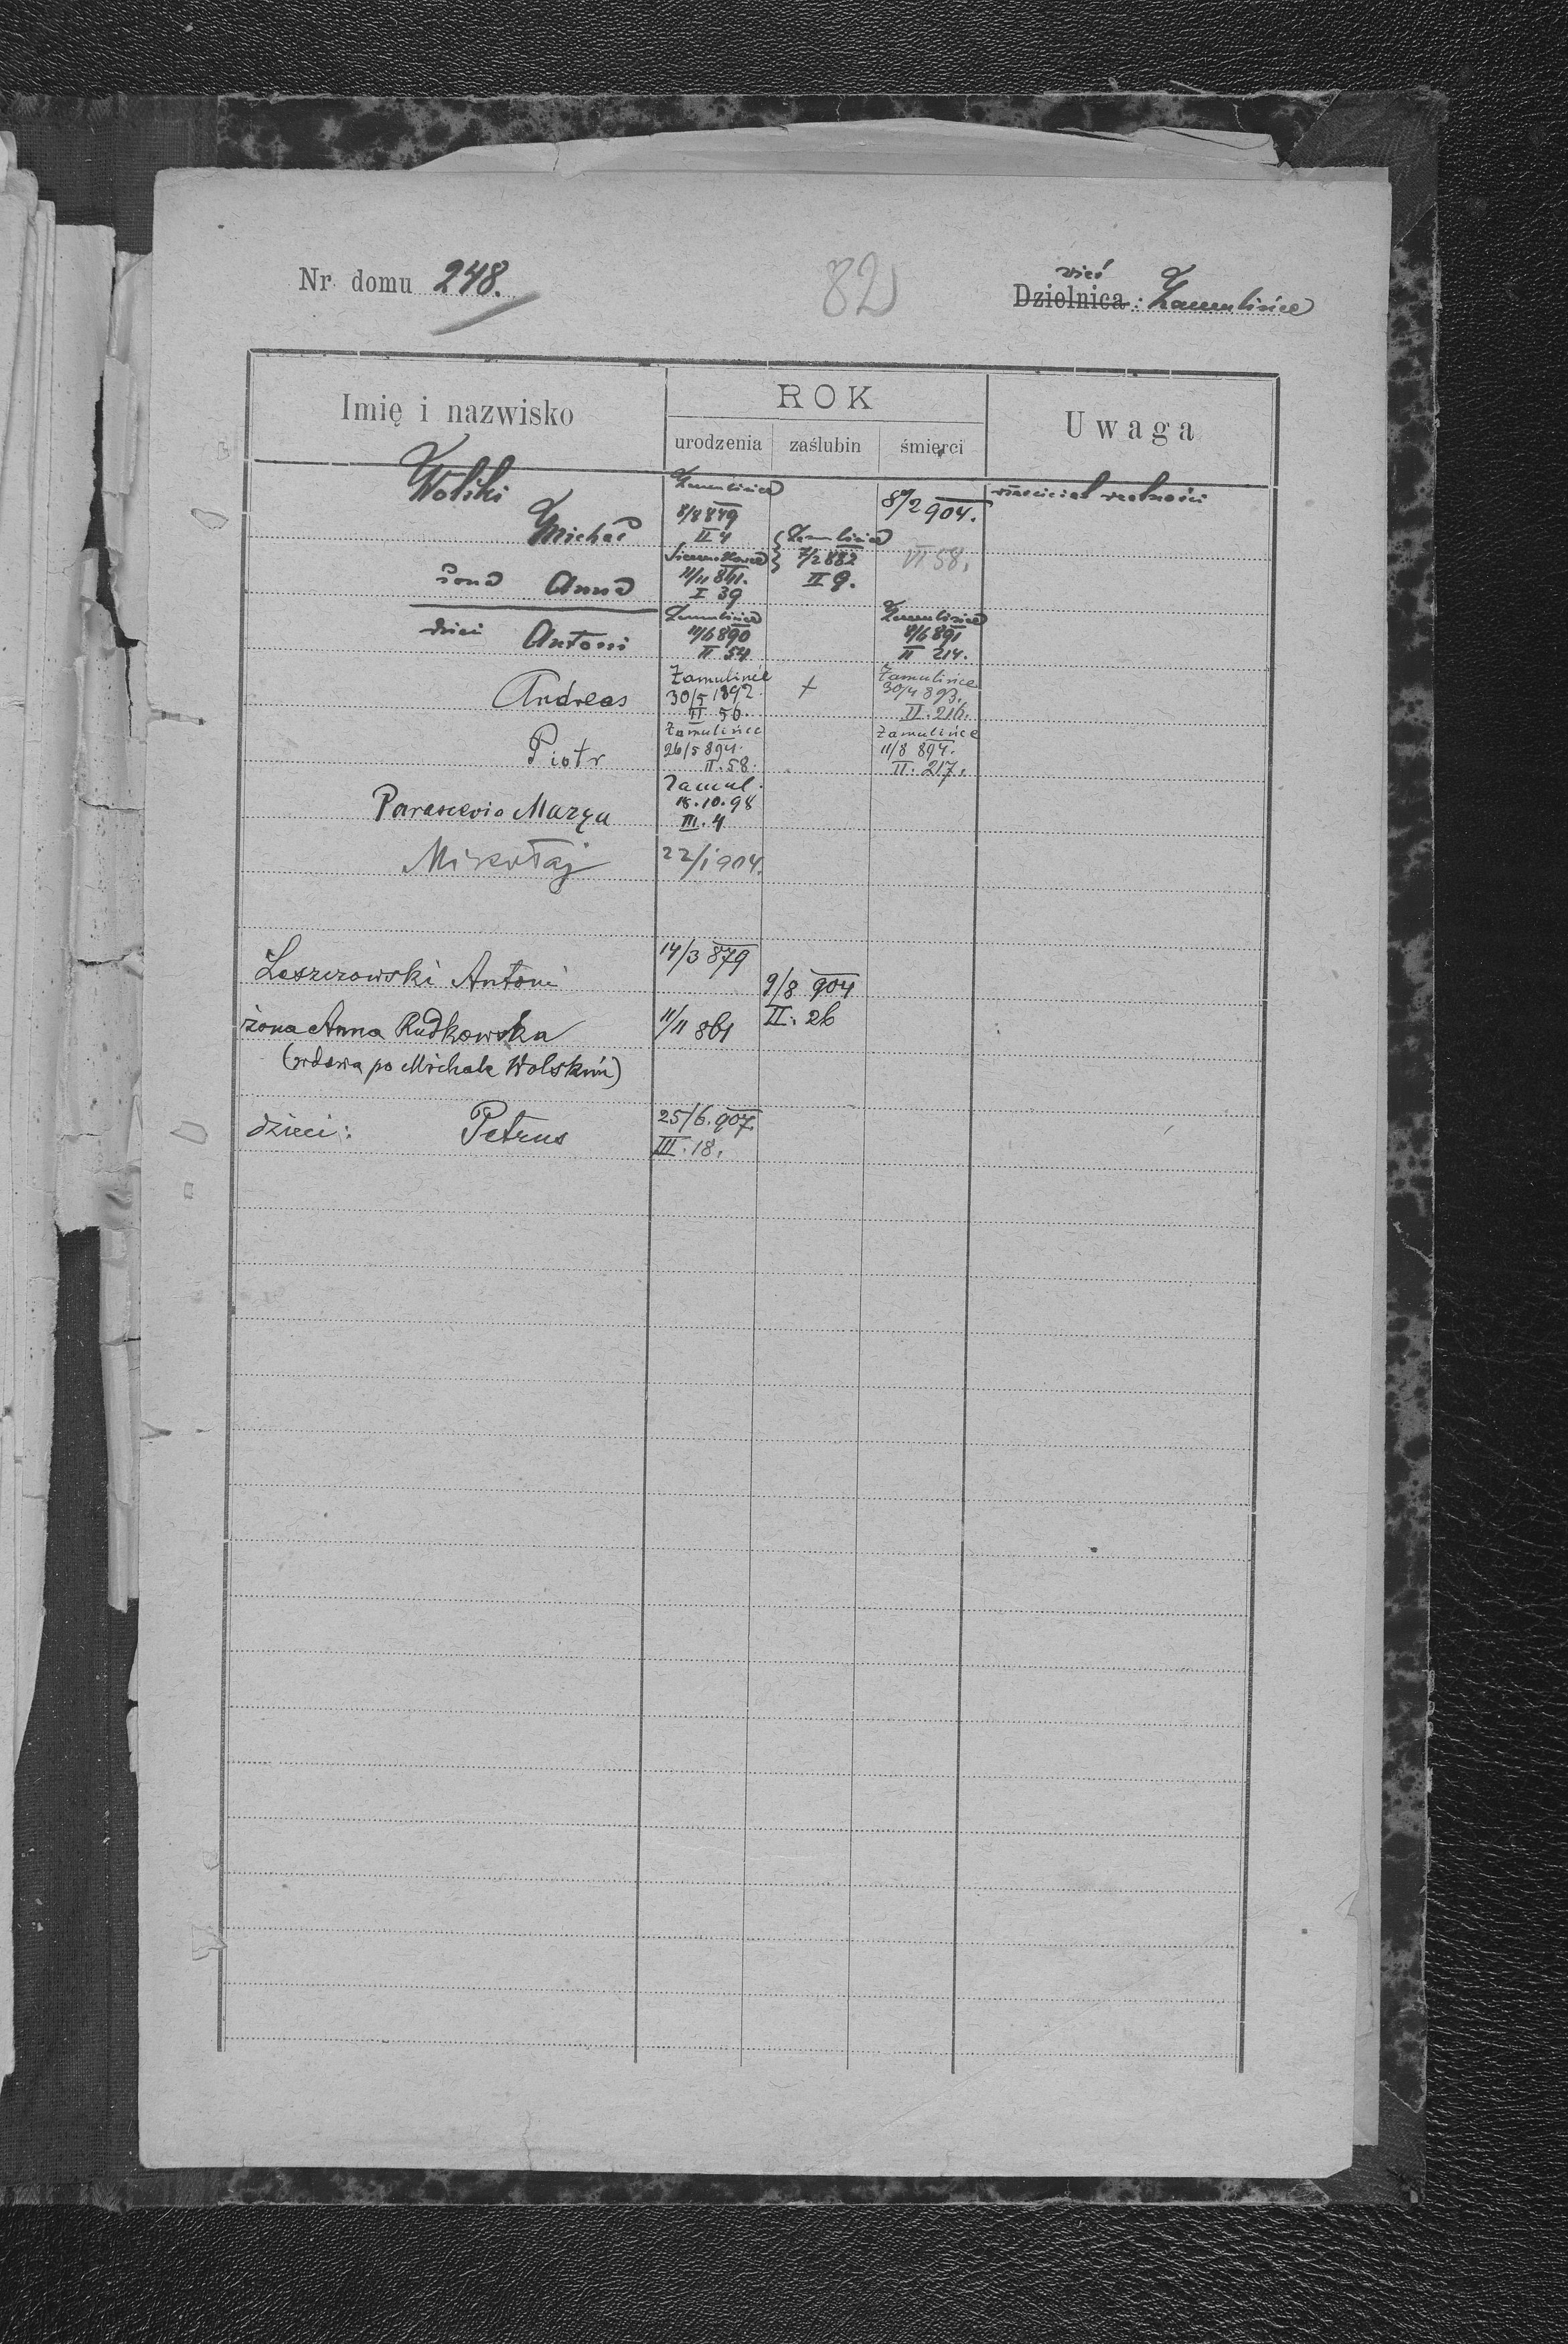 Nr domu 248.
82
wieś
Dzielnica: Zamulińce
Imię i nazwisko
ROK
urodzenia zaślubin śmierci
Uwaga
Wolski
Michał
Zamulińce
8/8 849
II 4
8/2 904.
właściciel realności
żona Anna
11/11 841.
I 39
Zamulińce
7/2 882
II 9.
VI 58.
dzieci Antoni
Zamulińce
11/6 890
II 54
Zamulińce
8/6 891
II 214.
Andreas
Zamulińce
30/5 1892.
II 56.
+
Zamulińce
30/4 893.
II. 216.
Piotr
Zamulińce
26/5 894.
II. 58.
Zamulińce
11/8 894.
II. 217.
Parascevia Marya
Zamul.
18.10.98
III. 4
Mikołaj
22/1 904.
Leszczowski Antoni
14/3 879
9/8 904
II. 26
żona Anna Rudkowska
11/11 861
(wdowa po Michale Wolskim)
dzieci: Petrus
25/6. 907.
III. 18.